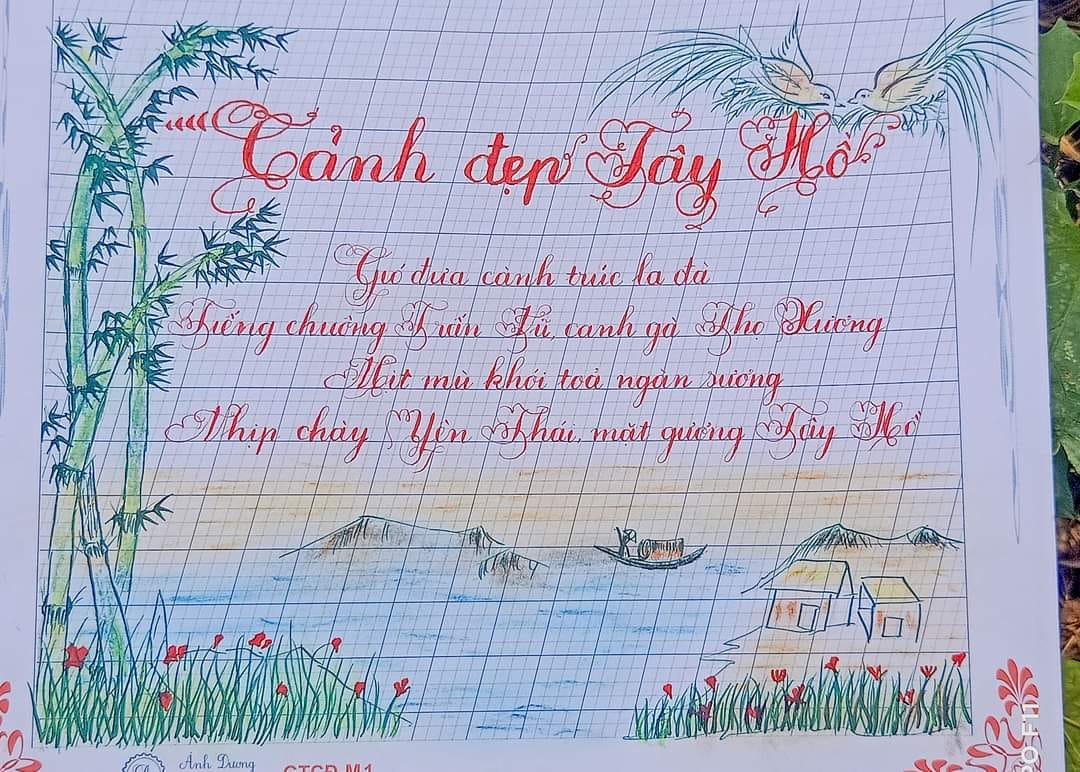 Cảnh đẹp Tây Hồ
Gió đưa cành trúc la đà
Tiếng chuông Trấn Vũ, canh gà Thọ Xương
Mịt mù khói toả ngàn sương
Nhịp chày Yên Thái, mặt gương Tây Hồ
Anh Dương